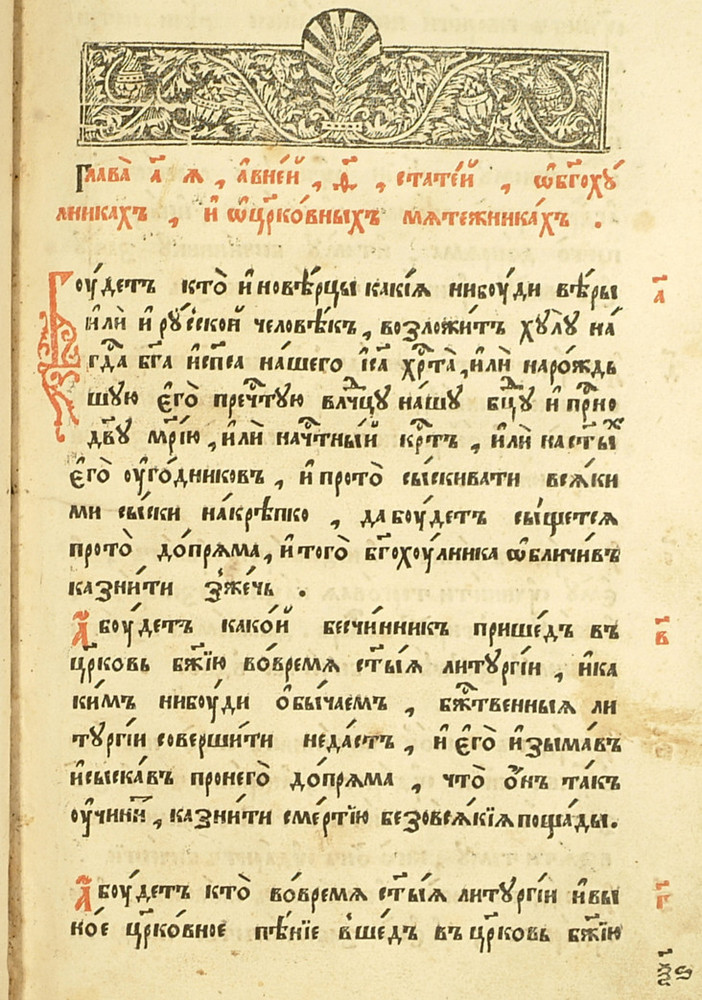 Глава̀ а҃ я , а҆вне́й , ѳ҃ , стате́й , ѡ҆бг҃охꙋ́
лникахъ , и҆ ѡ҆цр҃ко́вныхъ мѧте́жника́хъ .
Боу́детъ кто̀ и҆новѣ́рцы какі́ѧ нибоу́ди вѣ́ры
и҆лѝ и҆ рꙋ́сской человѣ́къ , возложи́тъ хꙋлꙋ̀ на́
гдⷭ҇а бг҃а и҆ сп҃са на́шего і҆с҃а хрⷭ҇та̀ , и҆лѝ наро́ждь
шꙋю є҆го̀ пречⷭ҇тꙋю влⷣчцꙋ на́шꙋ бцⷣꙋ и҆ прⷭ҇но
дв҃ꙋ мр҃і́ю , и҆лѝ начⷭ҇тны́й крⷭ҇тъ , и҆лѝ на ст҃ыⷯ
є҆го̀ оу҆го́дниковъ , и҆ прото̀ сы́скивати всѧ́ки
ми сы́ски на́крѣпко , да боу́детъ сы́щетсѧ
прото̀ до́прѧма , и҆ того̀ бг҃охоу́лника ѡ҆бличи́въ
казни́ти зже́чь .
А҆ боу́детъ како́й бесчи́нникъ прише́дъ въ
цр҃ковь бж҃їю во́времѧ ст҃ы́ѧ литꙋргі́и , и҆ ка
ки́мъ нибоу́ди ѻ҆бы́чаемъ , бжⷭ҇твенныѧ ли
тꙋргі́и соверши́ти неда́стъ , и҆ є҆го̀ и҆зыма́въ
и҆ сыска́въ пронего̀ до́прѧма , что̀ ѻ҆́нъ та́къ
оу҆чини́тъ , казни́ти сме́ртїю безовсѧ́кїѧ поща́ды.
А҆ боу́детъ кто̀ во́времѧ ст҃ы́ѧ литꙋргі́и и҆ вы
но́е цр҃ко́вное пѣ́нїе вше́дъ въ цр҃ковь бж҃їю
а҃
в҃
г҃